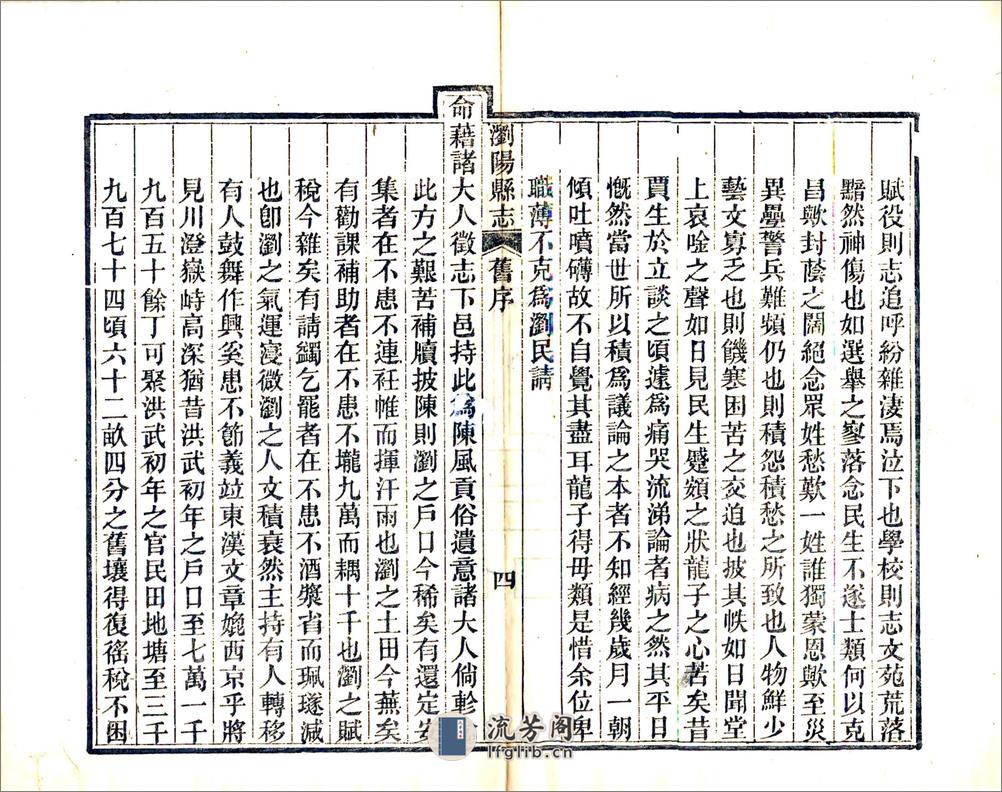 賦役則志追呼紛雜淒焉泣下也學校則志文苑荒落
黯然神傷也如選舉之寥落念民生不遂士類何以克
昌歟封蔭之闊絕念眾姓愁歎一姓誰獨蒙恩歟至災
異疊警兵難頻仍也則積怨積愁之所致也人物鮮少
藝文寡乏也則饑寒困苦之交迫也披其帙如日聞堂
上哀唫之聲如日見民生蹙頞之狀龍子之心苦矣昔
賈生於立談之頃遽為痛哭流涕論者病之然其平日
慨然當世所以積為議論之本者不知經幾歲月一朝
傾吐噴礴故不自覺其盡耳龍子得毋類是惜余位卑
職薄不克爲瀏民請
瀏陽縣志 舊序 四
命藉諸大人徵志下邑持此為陳風貢俗遺意諸大人倘軫念
此方之艱苦補牘披陳則瀏之戶口今稀矣有還定安
集者在不患不連衽帷而揮汗雨也瀏之土田今蕪矣
有勸課補助者在不患不壠九萬而耦十千也瀏之賦
稅今雜矣有請蠲乞罷者在不患不酒漿省而珮璲減
也卽瀏之氣運寖微瀏之人文積衰然主持有人轉移
有人鼓舞作興奚患不節義竝東漢文章媲西京乎將
見川澄嶽峙高深猶昔洪武初年之戶口至七萬一千
九百五十餘丁可聚洪武初年之官民田地塘至三千
九百七十四頃六十二畝四分之舊壤得復徭稅不困
流芳阁
lfglib.cn